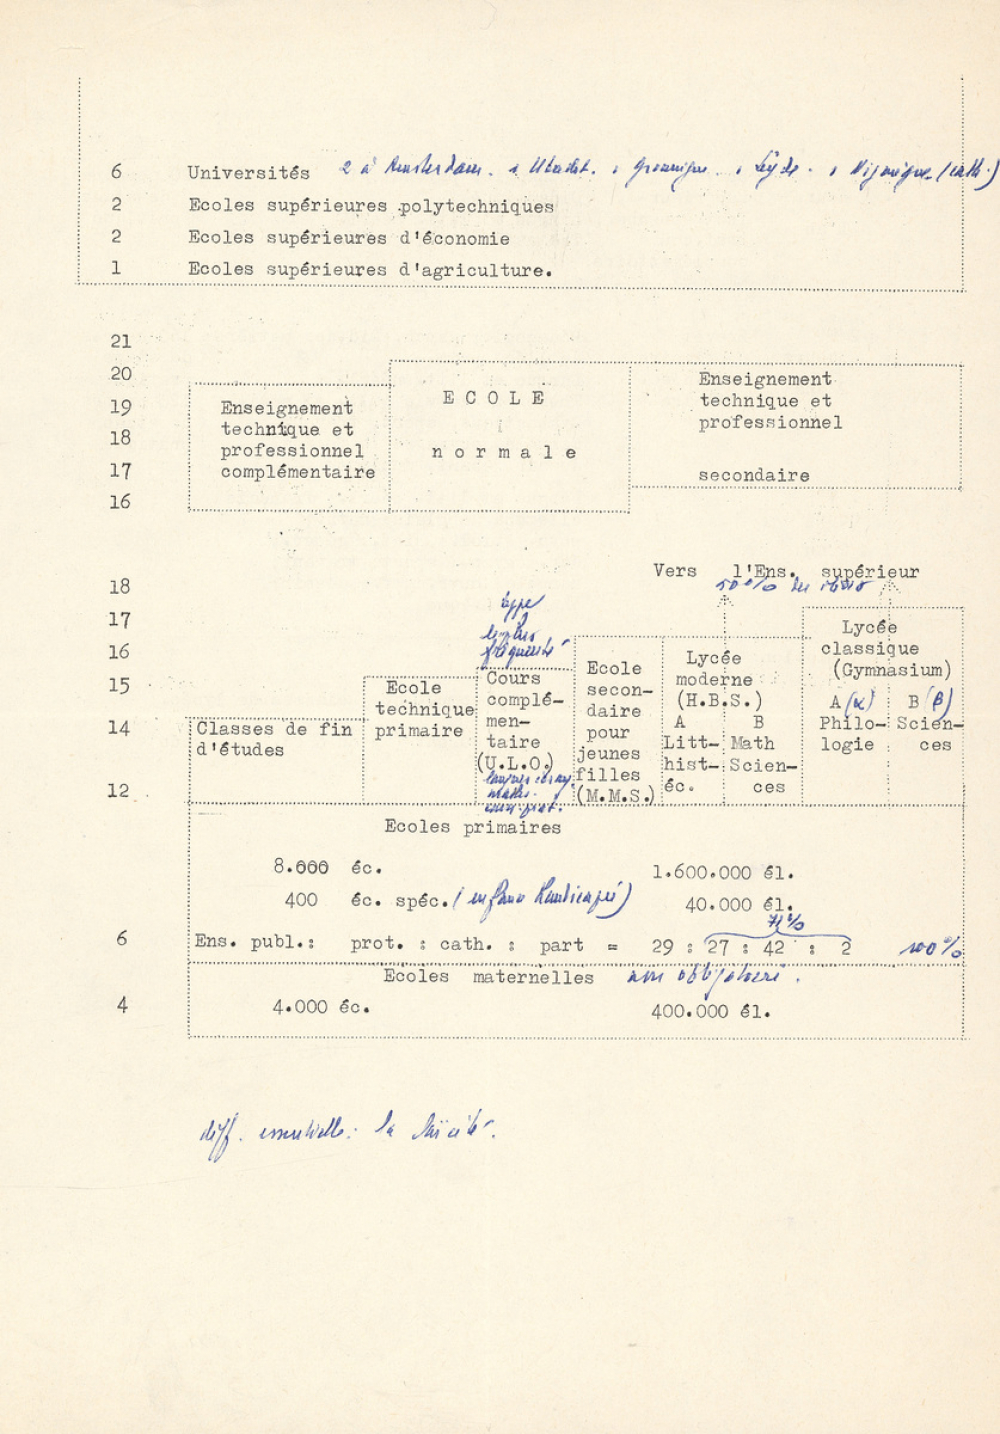 6 Universités 2 à Amsterdam. 1 Utrecht. 1 Groningue. 1 Leyde. 1 Nijmègue (cath.)
2 Ecoles supérieures polytechniques
2 Ecoles supérieures d'économie
1 Ecoles supérieures d'agriculture.
21
20
19
18
17
16
Enseignement
technique et
professionnel
complémentaire
E C O L E
n o r m a l e
Enseignement
technique et
professionnel
secondaire
Vers l'Ens. supérieur
50% du
18
17
16
15
14
12
Classes de fin
d'études
Ecole
technique
primaire
type
le plus
fréquenté
Cours
complé-
men-
taire
(U.L.O.)
maths.
Ecole
secon-
daire
pour
jeunes
filles
(M.M.S.)
Lycée
moderne
(H.B.S.)
A B
Litt- Math
hist- Scien-
éc. ces
Lycée
classique
(Gymnasium)
A (α) B (β)
Philo- Scien-
logie ces
Ecoles primaires
8.000 éc. 1.600.000 él.
400 éc. spéc. (enfants handicapés) 40.000 él.
71%
6 Ens. publ.: prot. : cath. : part = 29 : 27 : 42 : 2 100%
Ecoles maternelles non obligatoire.
4 4.000 éc. 400.000 él.
diff. essentielle : la laïcité.